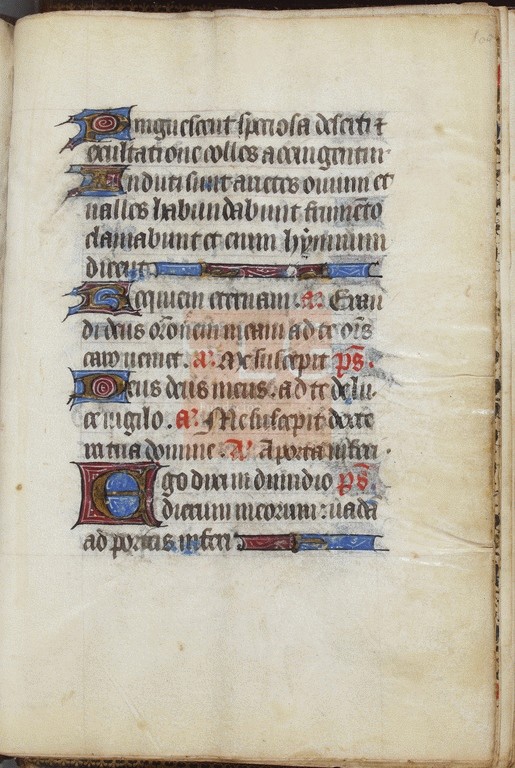 Pinguescent speciosa deserti et
exultatione colles accingentur.
Induti sunt arietes ovium et
valles habundabunt frumēto
clamabunt et enim hỹmnum
dicent
Requiem eternam. a. Exau
di deus orōnem meam ad te oīs
caro veniet. a. Me suscepit ps.
Deus deus meus. ad te de lu
ce vigilo. a. Me suscepit dexte
ra tua domine. A. A porta inferi.
Ego dixi in dimidio ps.
dierum meorum: vada
ad portas inferi